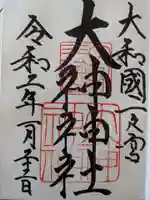 大和國一之宮
大神神社
令和二年一月日